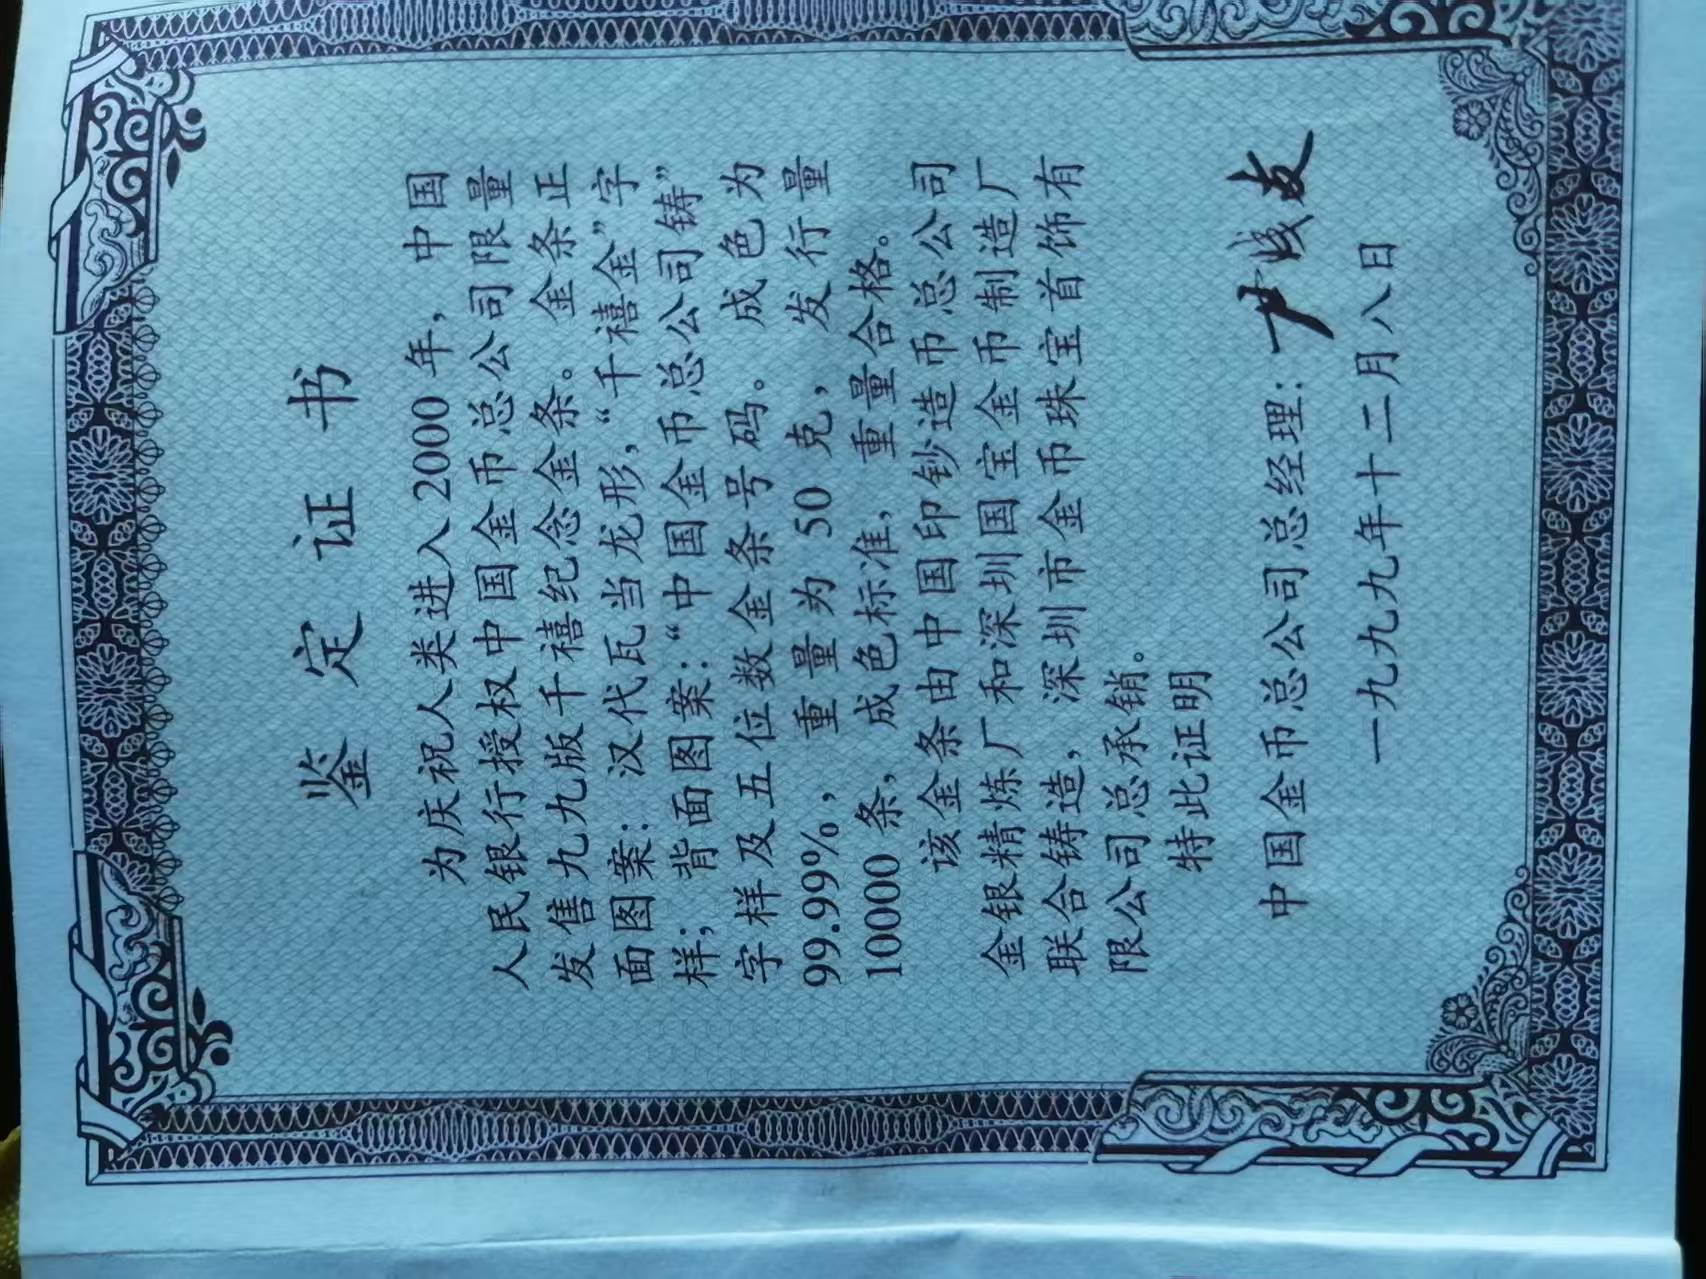 鉴定证书
为庆祝人类进入2000年，中国
人民银行授权中国金币总公司限量
发售九九版千禧纪念金条。金条正
面图案：汉代瓦当龙形，“千禧金”字
样；背面图案：“中国金币总公司铸”
字样及五位数金条号码。成色为
99.99%，重量为50克，发行量
10000条，成色标准，重量合格。
该金条由中国印钞造币总公司
金银精炼厂和深圳国宝金币制造厂
联合铸造，深圳市金币珠宝首饰有
限公司总承销。
特此证明
中国金币总公司总经理：
一九九九年十二月八日